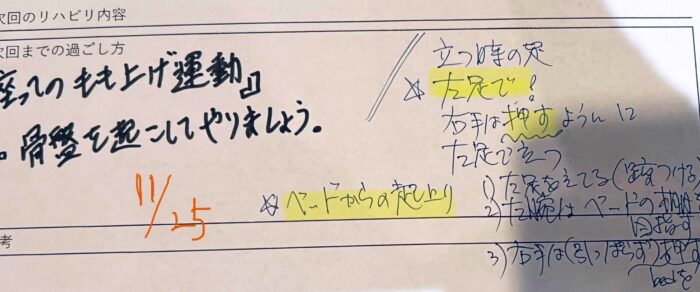 次回のリハビリ内容
次回までの過ごし方
座ってのもも上げ運動』
。骨盤を起こしてやりましょう。
11/25
立つ時の足
☆ 左足で!
右手は押すように
左足で立つ
☆ ベッドからの起上り
1) 左足を立てる(
2) 左腕はベッドの柵
目指す
3) 右手は(引っぱらず)押す
bedを
考